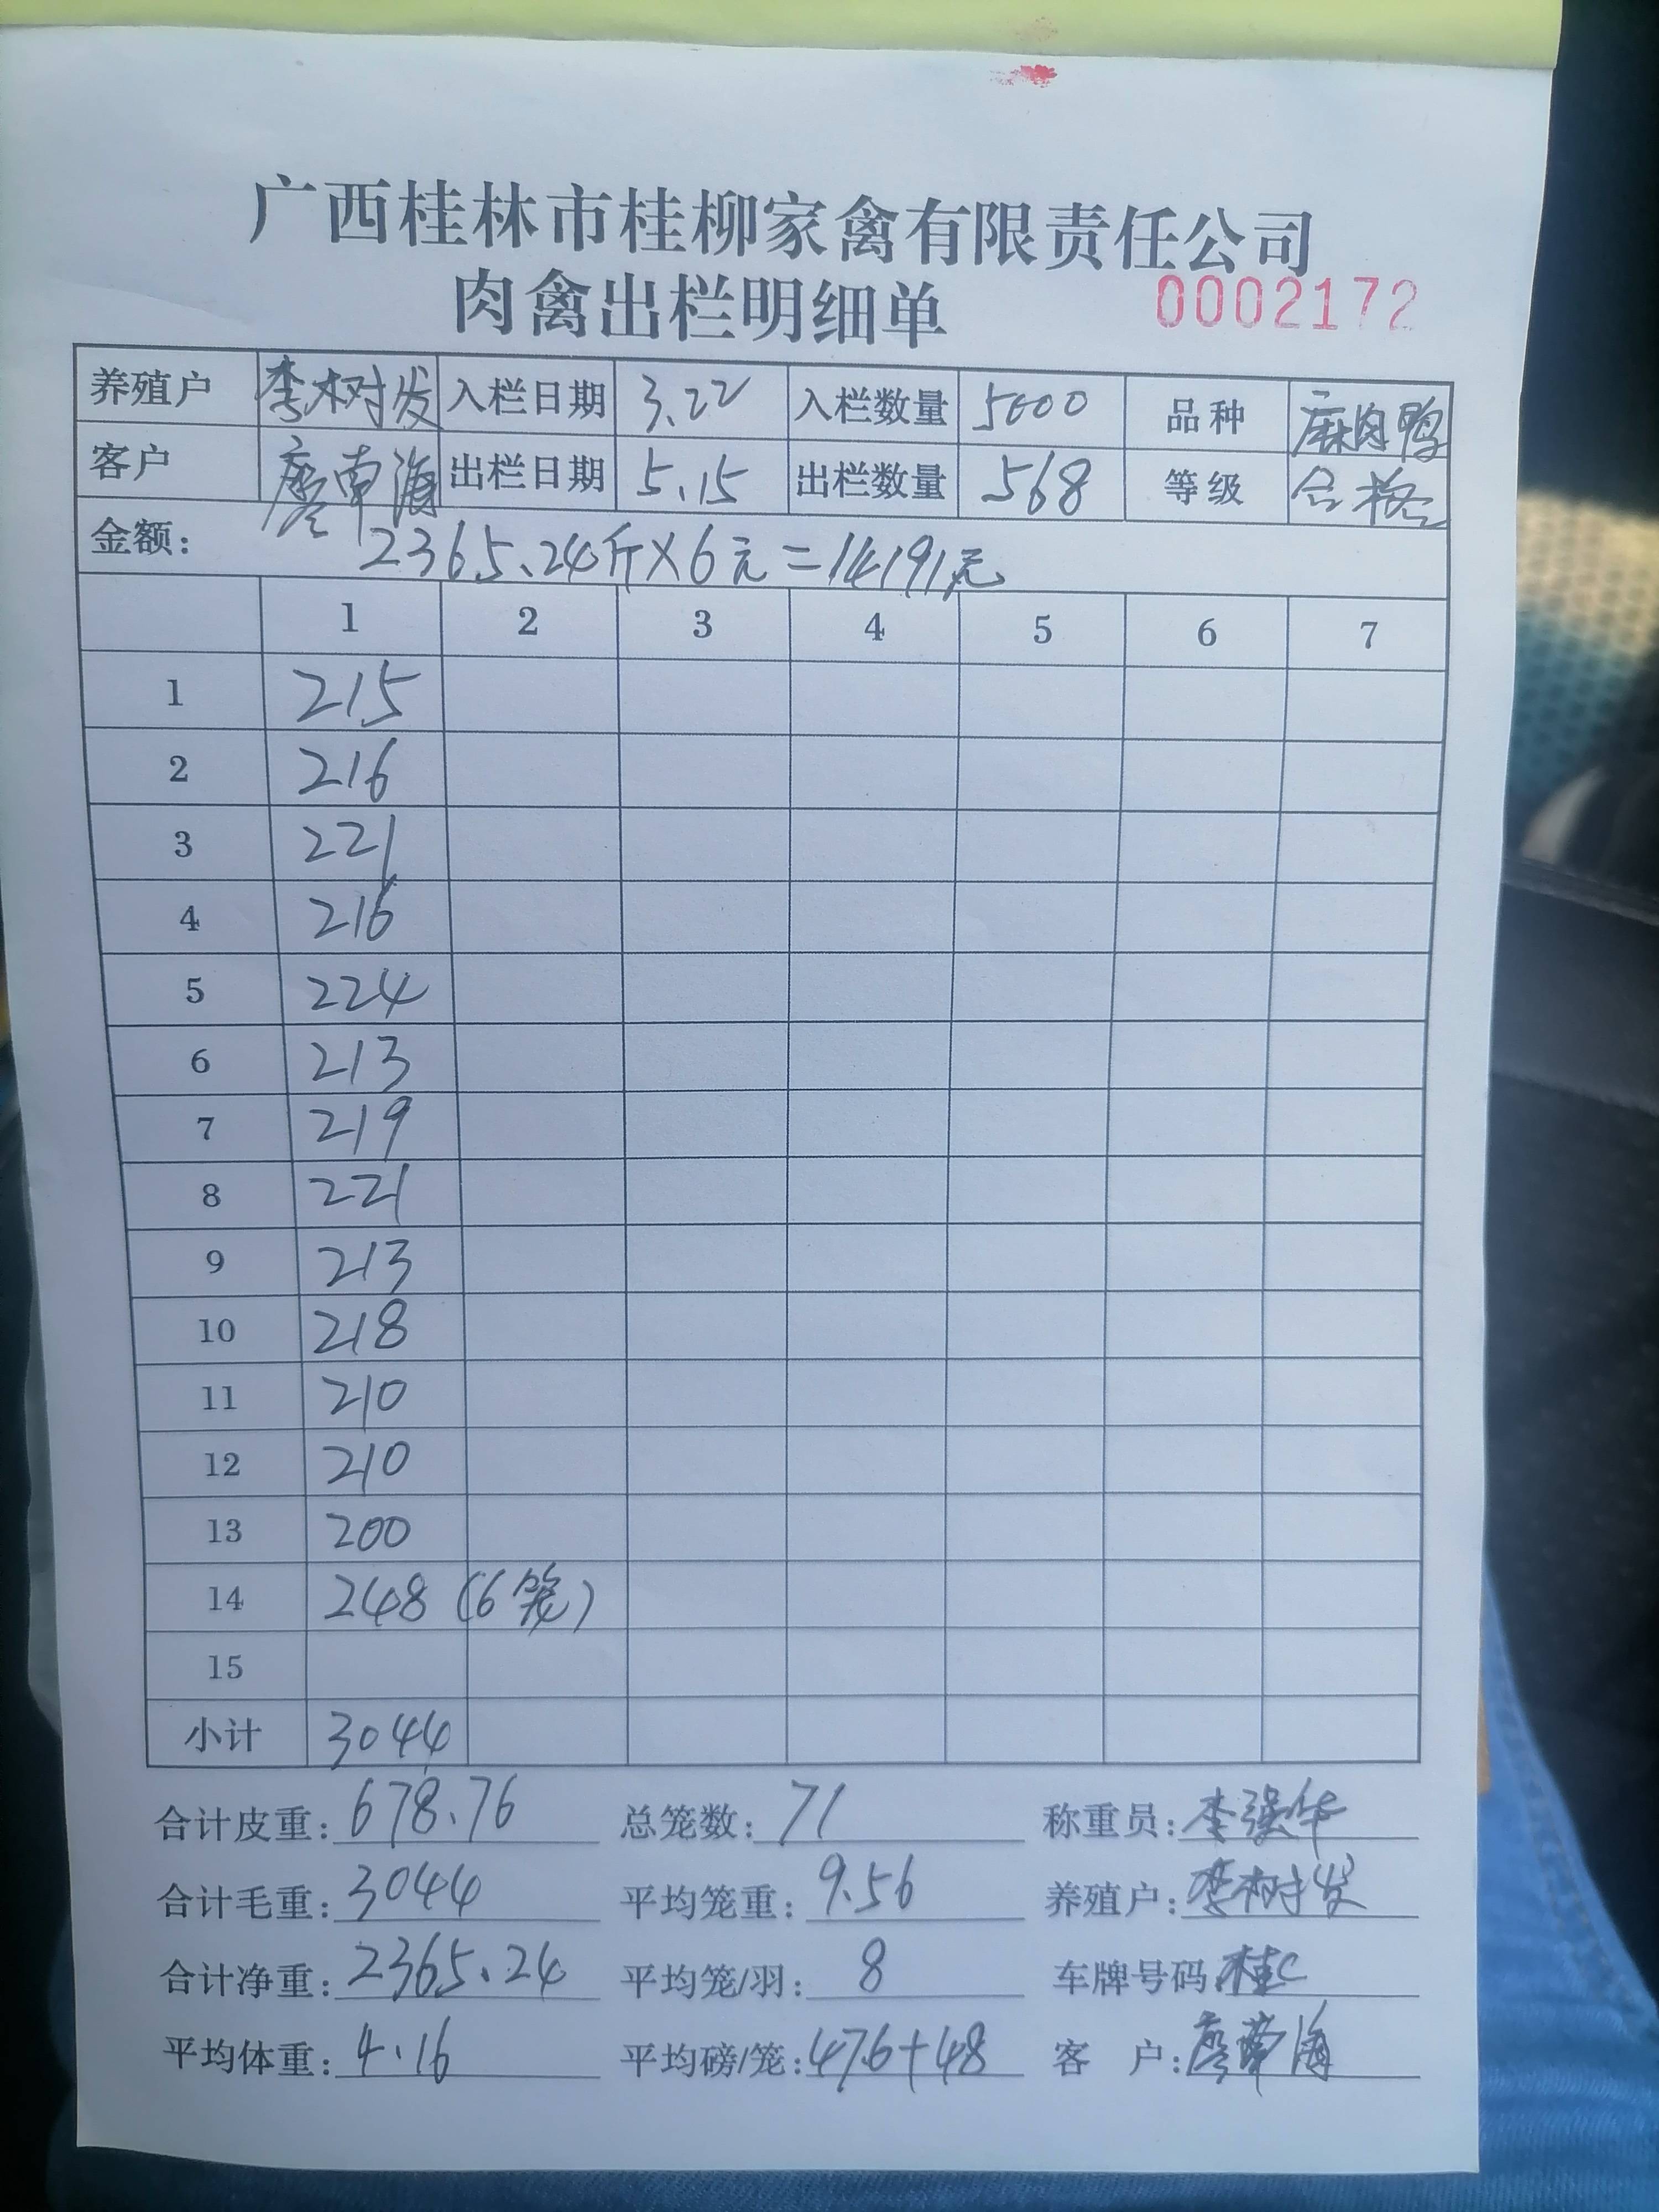 广西桂林市桂柳家禽有限责任公司
肉禽出栏明细单 0002172
养殖户 李树发 入栏日期 3.22 入栏数量 5000 品种 麻肉鸭
客户 廖南海 出栏日期 5.15 出栏数量 568 等级 合格
金额: 2365.24斤×6元=14191元
1 2 3 4 5 6 7
1 215
2 216
3 221
4 216
5 224
6 213
7 219
8 221
9 213
10 218
11 210
12 210
13 200
14 248 (6笼)
15
小计 3044
合计皮重: 678.76 总笼数: 71 称重员: 李强华
合计毛重: 3044 平均笼重: 9.56 养殖户: 李树发
合计净重: 2365.24 平均笼/羽: 8 车牌号码: 桂C
平均体重: 4.16 平均磅/笼: 47.6+48 客 户: 廖南海